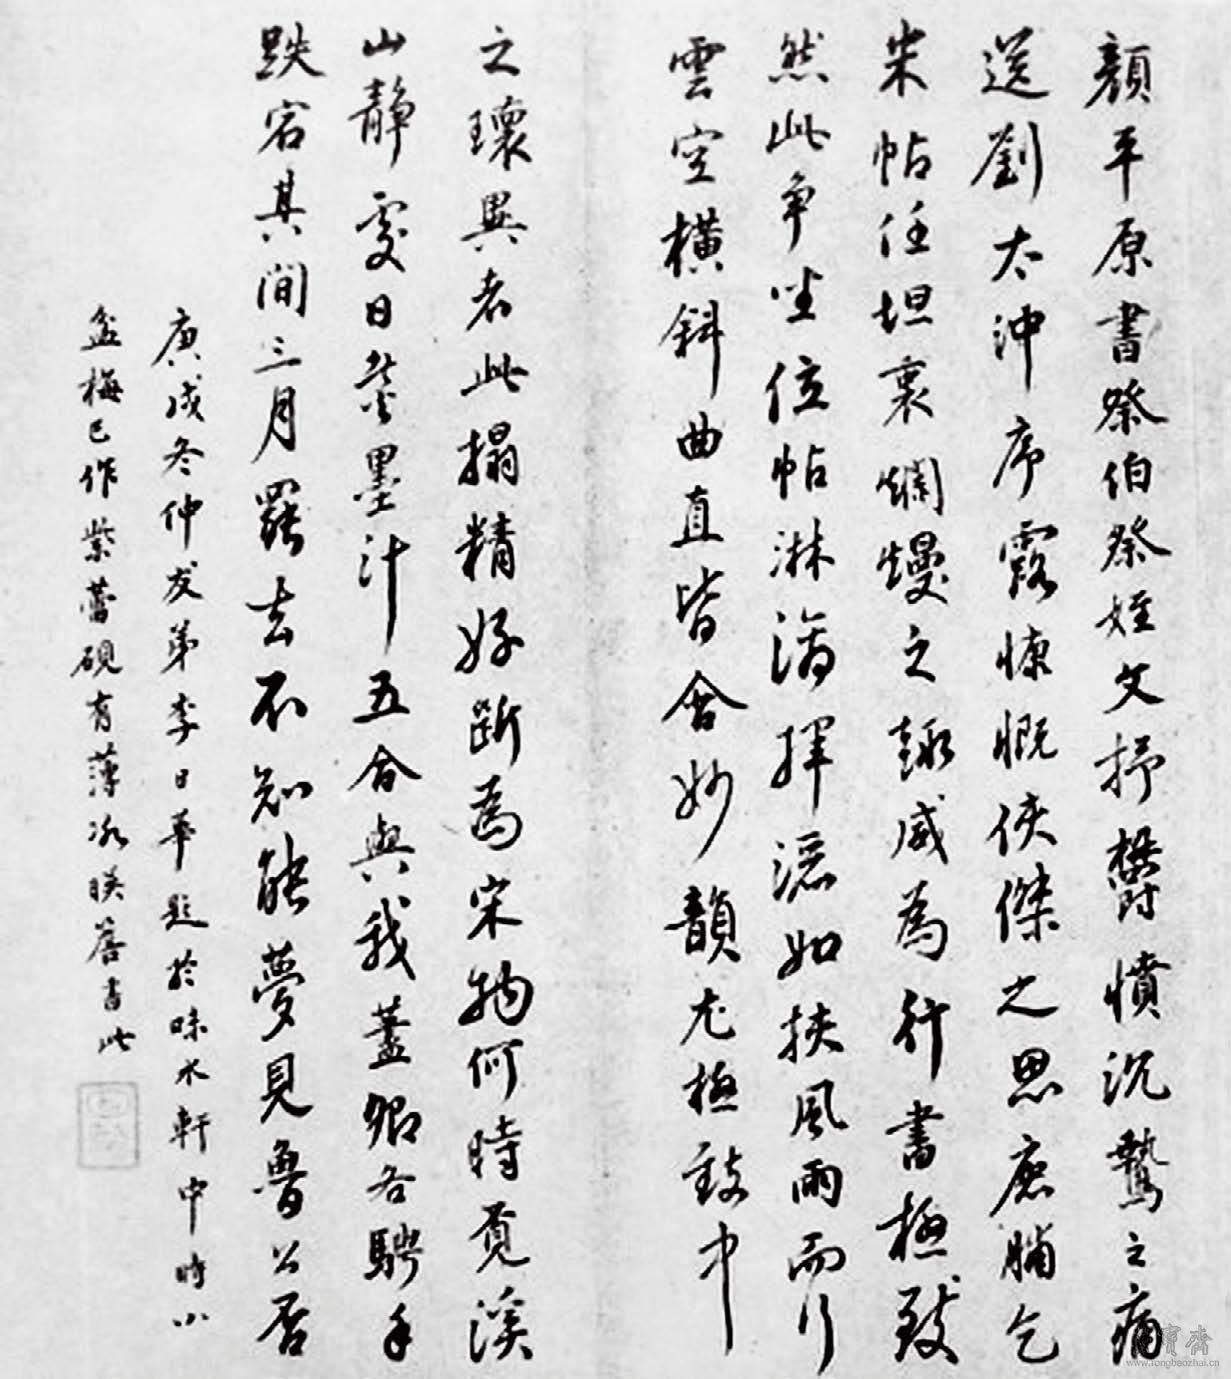 顏平原書祭伯祭姪文抒欝憤沉鷙之痛
送劉太沖序露慷慨俠傑之思鹿脯乞
米帖任坦衷爛熳之趣咸為行書極致
然此爭坐位帖淋漓揮灑如挾風雨而行
雲空橫斜曲直皆含妙韻尤極致中
之瓌異者此搨精好斷為宋物何時覓溪
山靜處日墨汁五合與我蓋卿各騁手
跌宕其間三月罷去不知能夢見魯公否
庚戌冬仲友弟李日華題於味水軒中時小
盆梅已作紫蕾硯有薄冰暎普書此
寶齋
www.rongbaozhai.cn